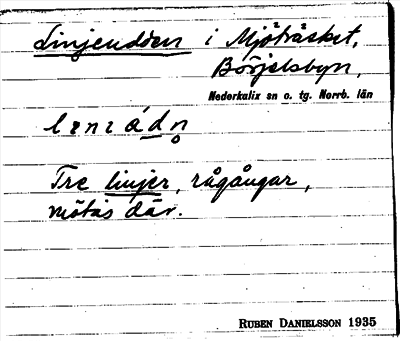 Linjeudden i Mjöträsket,
Börjelsbyn,
Nederkalix sn o. tg. Norrb. län
Tre linjer, rågångar,
mötas där.
RUBEN DANIELSSON 1935